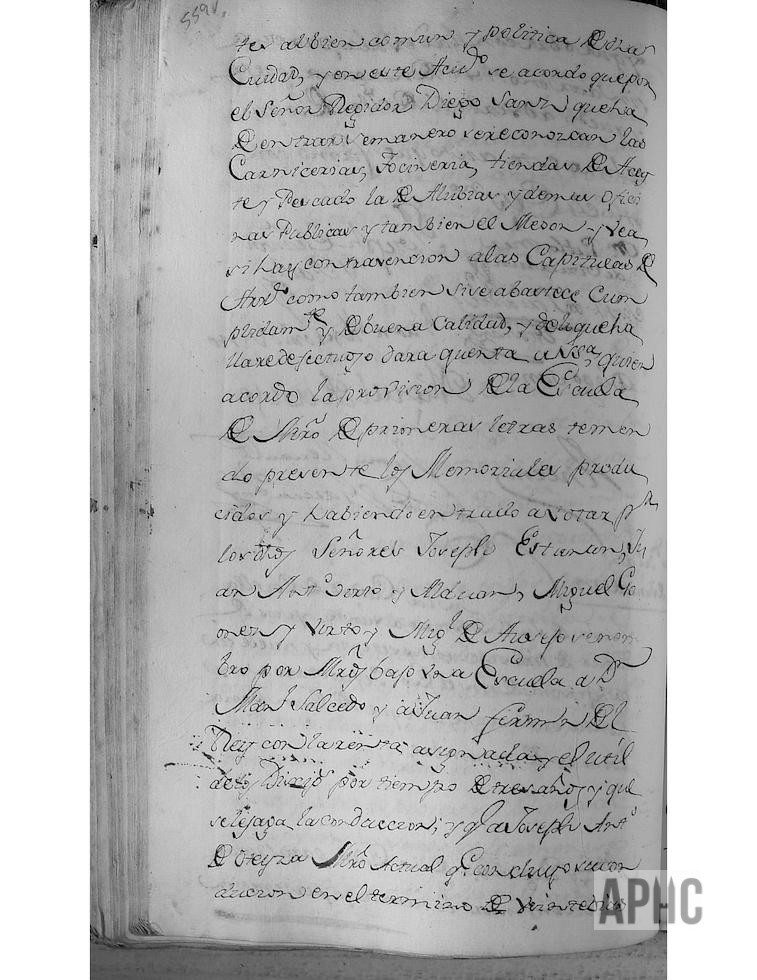 559v.
tes al bien comun y politica De esta
Ciudad, y en este Acu.do se acordo que por
el Señor Regidor Diego Sanz que ha
De entrar semanero se reconozcan las
Carnicerias, Tocineria, tiendas De Acey
te y Pescado la De Alubias y demas Ofici
nas Publicas y tambien el Meson y vea
si hay contravencion a las Capitulas De
Arr.do como tambien si se abastece Cum
plidam.te y De buena Calidad, y de lo que ha
llare defectuoso dara quenta a N.S.a quien
acordo la provision De la Escuela
De Mro De primeras letras tenien
do presente los Memoriales produ
cidos y habiendo entrado a votar p.r
los dhos Señores Joseph Estanun, Ju
an Ant.o Virto y Alduan, Miguel Gi
menez y Virto y Mig.l De se nom
bro por Mros bajo una Escuela a D.n
Man.l Salcedo y a Juan Fermin Del
Rey con la renta asignada y el util
de los por tiempo De tres años y que
se les aga la conduccion; y q.e a Joseph Ant.o
De Oteyza Mro Actual q.e concluyo su con
ducion en el termino De veinte dias
APHC